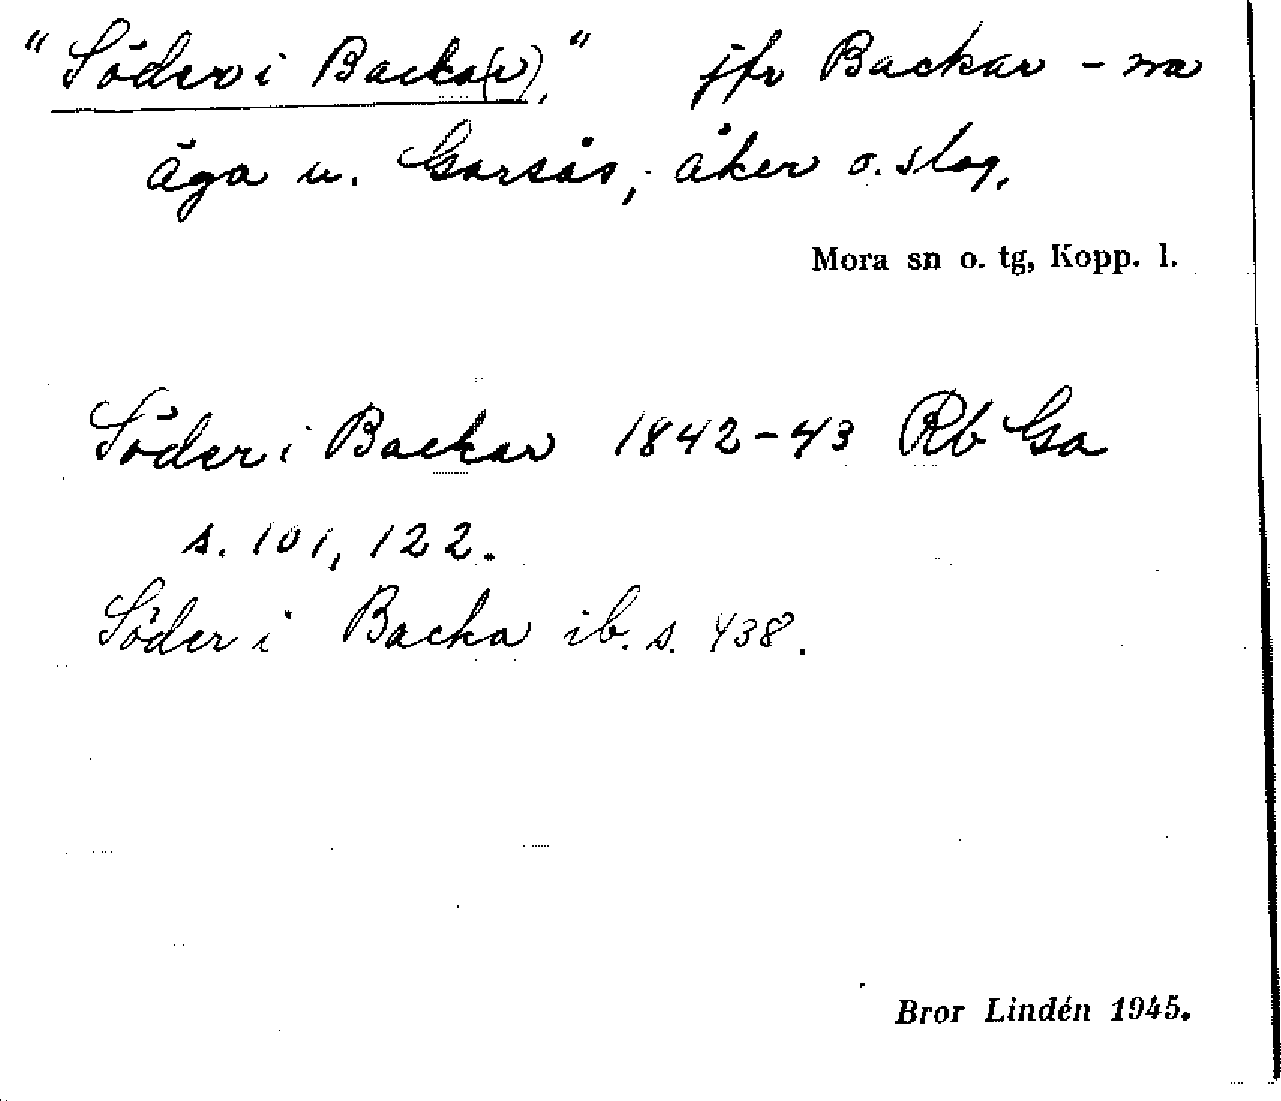 "Söder i Backa(r)," jfr Backar - na
äga u. Garsås, åker o. slog.
Mora sn o. tg, Kopp. l.
Söder i Backar 1842-43 Rb Ga
s. 101, 122.
Söder i Backa ib. s. 438.
Bror Lindén 1945.